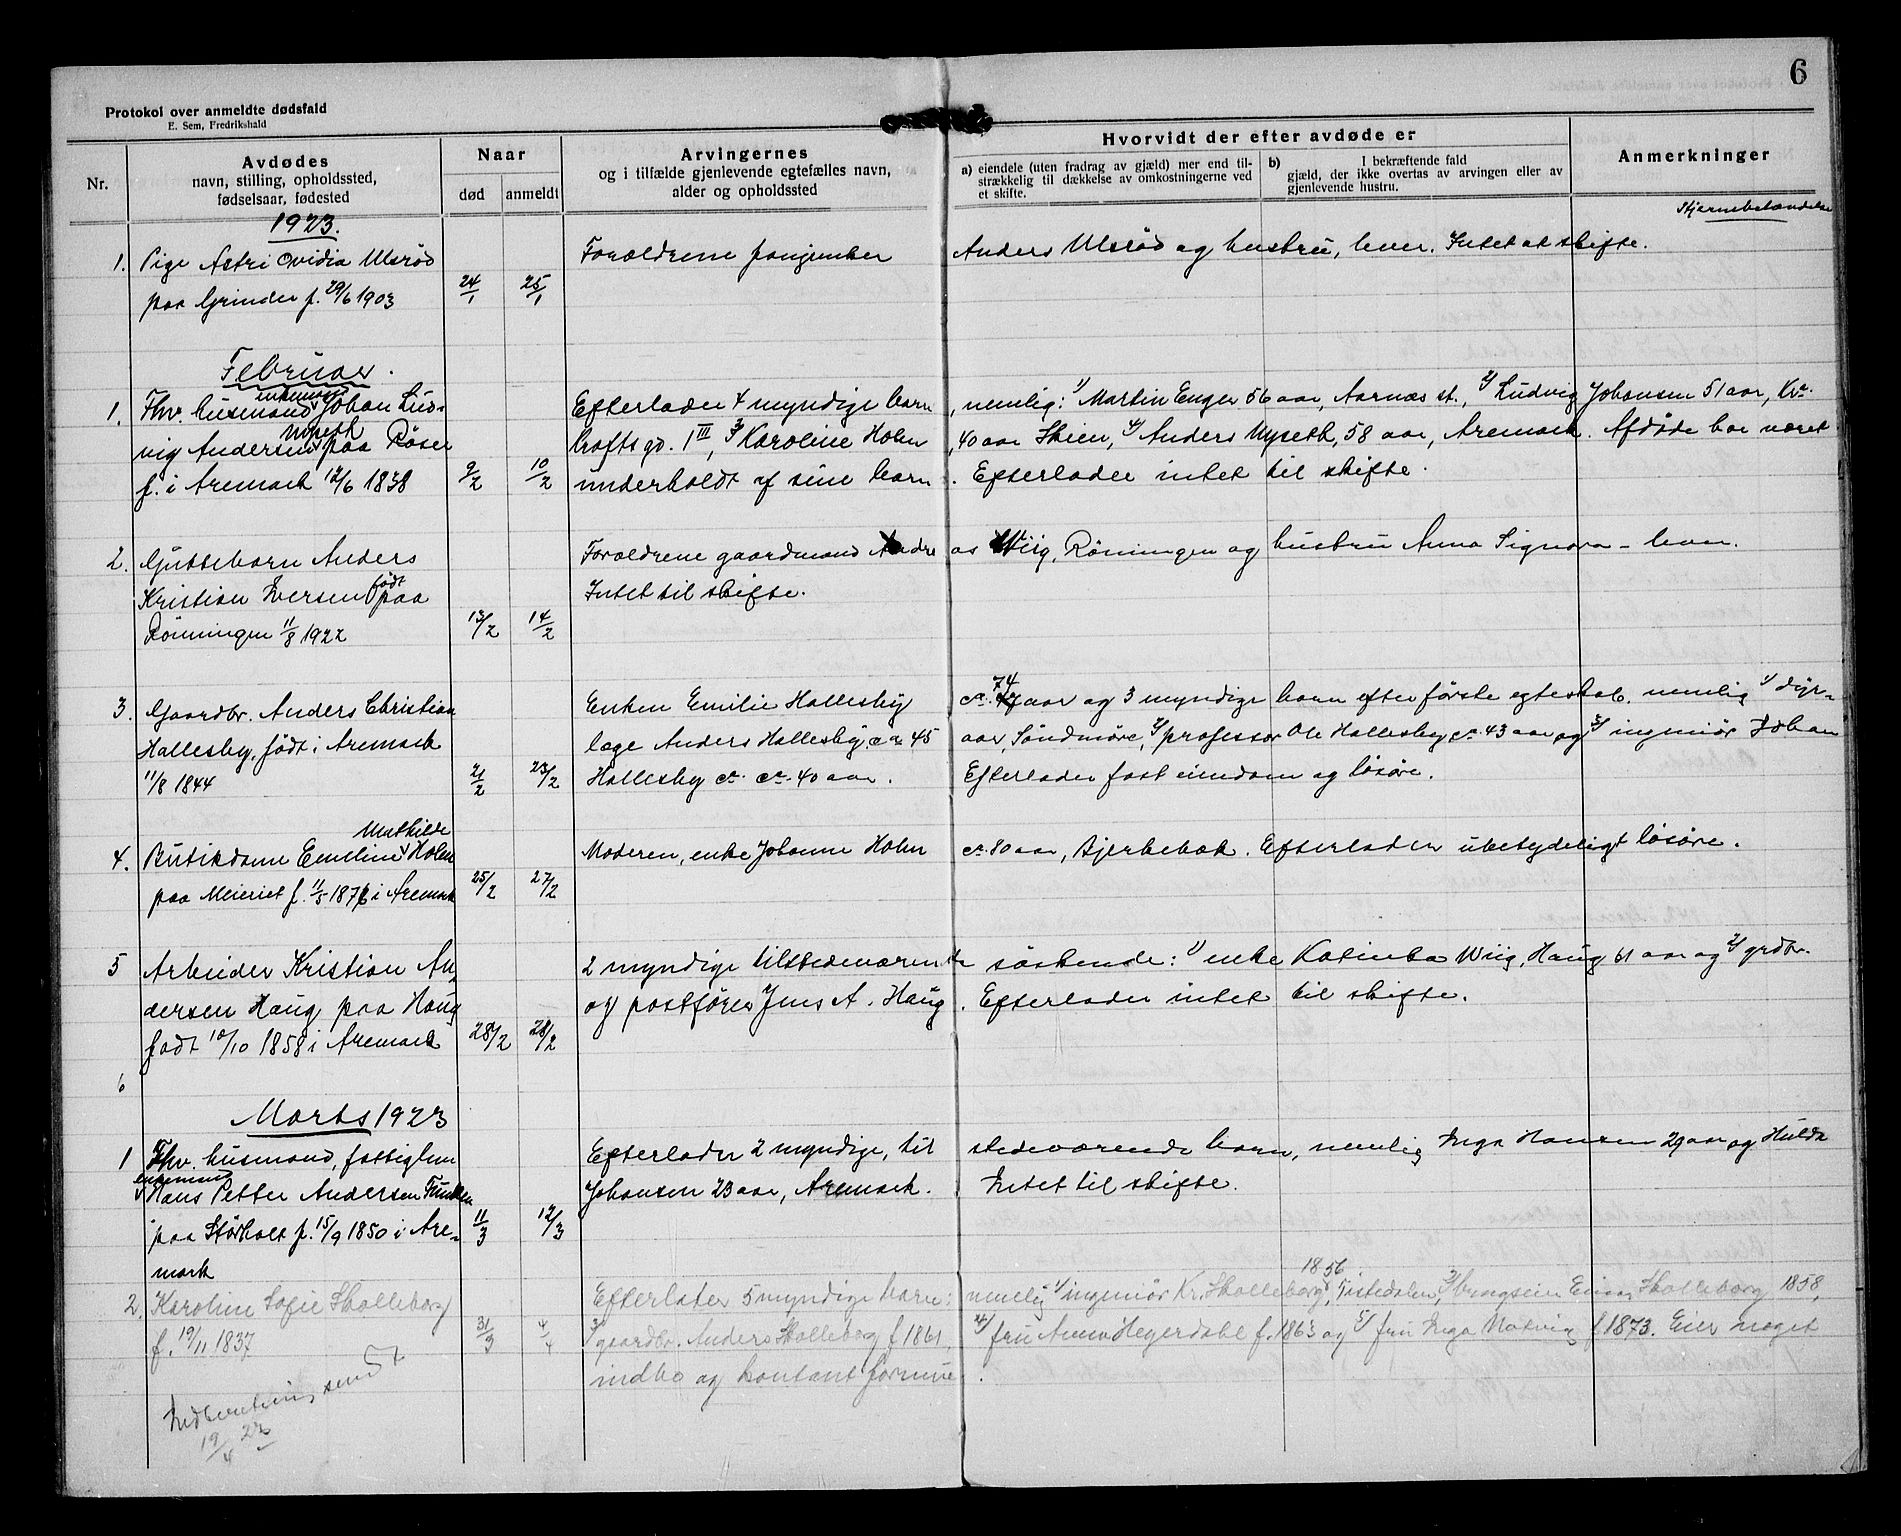 6
Protokol over anmeldte dødsfald
E. Sem, Fredrikshald
Nr.
Avdødes
navn, stilling, opholdssted,
fødselsaar, fødested
Naar
død
anmeldt
Arvingernes
og i tilfælde gjenlevende egtefælles navn,
alder og opholdssted
Hvorvidt der efter avdøde er
a) eiendele (uten fradrag av gjæld) mer end til-
strækkelig til dækkelse av omkostningerne ved
et skifte.
b) I bekræftende fald
gjæld, der ikke overtas av arvingen eller av
gjenlevende hustru.
Anmerkninger
1923.
Hjernebetændelse
1. Pige Astri Ovidia Ulsröd
paa Grinder f. 29/6 1903
24/1 25/1
Forældrene Anders Ulsröd og hustru, lever. Intet at skifte.
Februar.
1. Fhv. husmand, enkemand Johan Lud-
vig Andersen Nyseth paa Röser
f. i Aremark 12/6 1838
9/2 10/2
Efterlader 4 myndige barn, nemlig: 1/ Martin Enger 56 aar, Aarnæs st., 2/ Ludvig Johansen 51 aar, Kr.
krafts gd. 1 III, 3/ Karoline Holm, 40 aar Skien, 4/ Anders Nyseth, 58 aar, Aremark. Afdöde har været
underholdt af sine barn. Efterlader intet til skifte.
2. Guttebarn Anders
Kristian Iversen född paa
Rönningen 11/8 1922
13/2 14/2
Forældrene gaardmand Andreas Wiig, Röningen og hustru Anna Signora - lever.
Intet til skifte.
3. Gaardbr. Anders Christian
Hallesby, födt i Aremark
11/8 1844
21/2 23/2
Enken Emilie Hallesby ca. 74 aar og 3 myndige barn efter förste egteskab. nemlig 1/ dyr-
læge Anders Hallesby, ca 45 aar, Söndmöre, 2/ professor Ole Hallesby ca. 43 aar og 3/ ingeniör Johan
Hallesby ca. 40 aar. Efterlader fast eiendom og lösöre.
4. Butikdame Emeline Mathilde Holm
paa Meieriet f. 11/5 1876 i Aremark
25/2 27/2
Moderen, enke Johanne Holm ca. 80 aar, Bjerkebæk. Efterlader ubetydeligt lösöre.
5 Arbeider Kristian An-
dersen Haug, paa Haug
födt 10/10 1858 i Aremark
28/2 28/2
2 myndige tilstedeværende söskende: 1/ enke Katinka Wiig, Haug 61 aar og 2/ grdbr.
og postförer Jens A. Haug. Efterlader intet til skifte.
6
Marts 1923
1 Fhv. husmand, fattiglem
enkemand Hans Petter Andersen Funken
paa Störholt f. 15/9 1850 i Are-
mark
11/3 12/3
Efterlader 2 myndige, tilstedeværende barn, nemlig Inga Hansen 29 aar og Hulda
Johansen 23 aar, Aremark. Intet til skifte.
2. Karoline Sofie Skolleborg
f. 19/11 1837
31/3 4/4
Efterlater 5 myndige barn: nemlig 1/ ingeniör Kr. Skolleborg 1856, Tistedalen, 2/ Einar Skolleborg 1858,
3/ gaardbr. Anders Skolleborg f. 1861, 4/ fru Anna Hegerdahl f. 1863 og 5/ fru Inga Natvig f. 1873. Eier noget
indbo og kontant formue.
Indberetning sendt
19/4 23